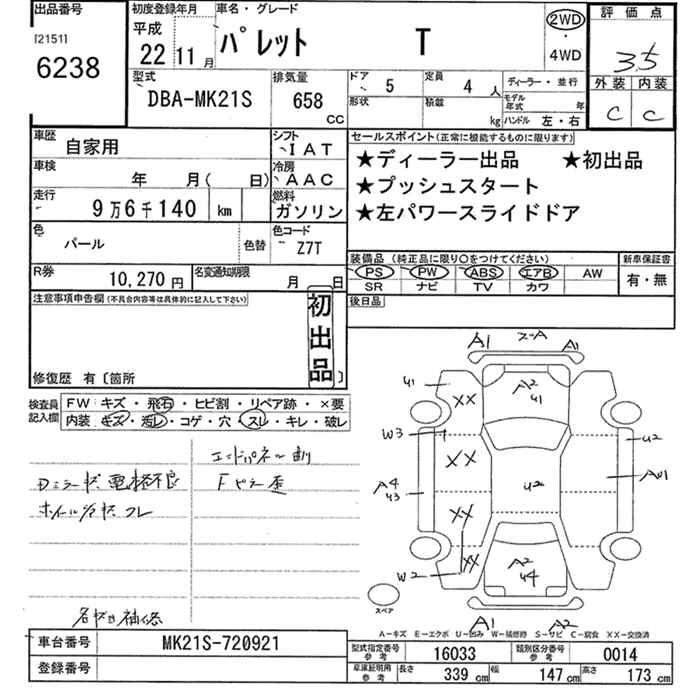 出品番号 初度登録年月 車名・グレード 評価点
[21511]
6238
平成 22 11月 パレット T
2WD
・
4WD
3.5
外装 内装
C C
型式 排気量 ドア 5 定員 4人 ディーラー・並行
DBA-MK21S 658 CC
形状 積載 kg モデル年式 年
ハンドル 左・右
車歴 自家用 シフト IAT
車検 年 月( 日) 冷房 AAC
走行 9万6千140 km 燃料 ガソリン
色 パール 色替 色コード Z7T
R券 10,270円 名変通知期限 月 日
セールスポイント(正常に機能するものに限ります)
★ディーラー出品 ★初出品
★プッシュスタート
★左パワースライドドア
装備品(純正品に限り○をつけてください) 新車保証書
PS PW ABS エアB AW 有・無
SR ナビ TV カワ
後日品
注意事項申告欄(不具合内容等は具体的に記入して下さい)
初出品
修復歴 有〔箇所 〕
検査員記入欄 FW キズ・飛石・ヒビ割・リペア跡・×要
内装 キズ・汚レ・コゲ・穴・スレ・キレ・破レ
エンドパネル凹
Dミラー状 電格不良 Fピラー歪
A1 A1
A2
U1
U1
XX
W3
XX
A4
U3
U2
U2
XX
XX
W2
A2
U4
A1 A2
スペア
A-キズ E-エクボ U-凹み W-補修跡 S-サビ C-腐食 XX-交換済
車台番号 MK21S-720921
登録番号
型式指定番号 参考 16033 類別区分番号 参考 0014
車庫証明用 参考 長さ 339 cm 幅 147 cm 高さ 173 cm